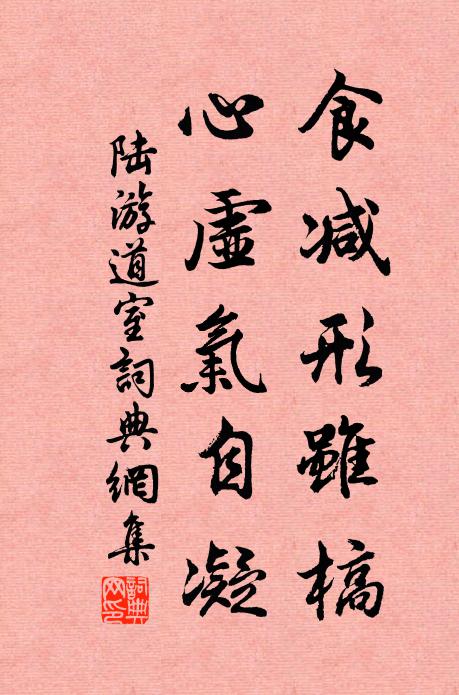 食減形雖槁
心虛氣自凝
陸游道室詞典網集
詞典网印